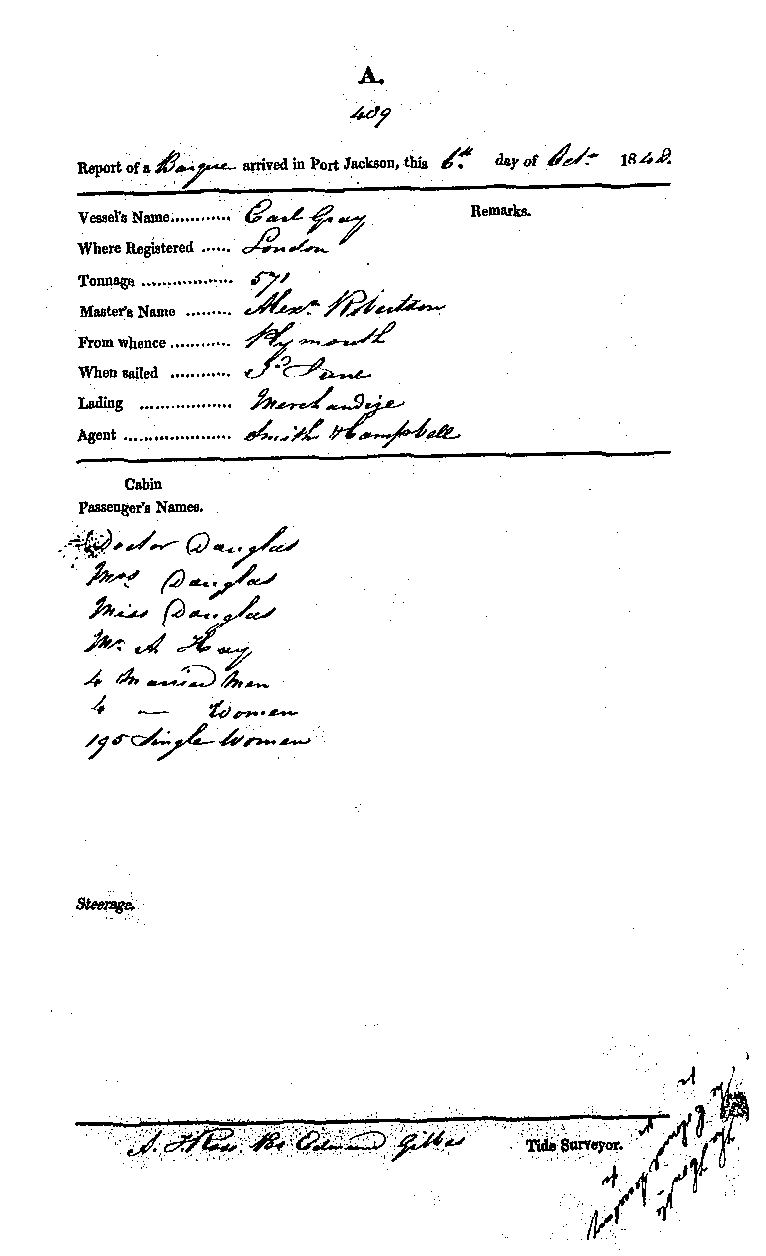 A.
409
Report of a Barque arrived in Port Jackson, this 6th. day of Octr. 1848.
Vessel's Name........... Earl Gray
Remarks.
Where Registered ...... London
Tonnage .................. 571
Master's Name ......... Alexr. Robertson
From whence ............ Plymouth
When sailed ............ 3d June
Lading .................. Merchandize
Agent ..................... Smith & Campbell
Cabin
Passenger's Names.
Doctor Douglas
Mrs Douglas
Miss Douglas
Mr. A Hay
4 Married Men
4 — Women
195 Single Women
Steerage.
Edward Gibbes Tide Surveyor.